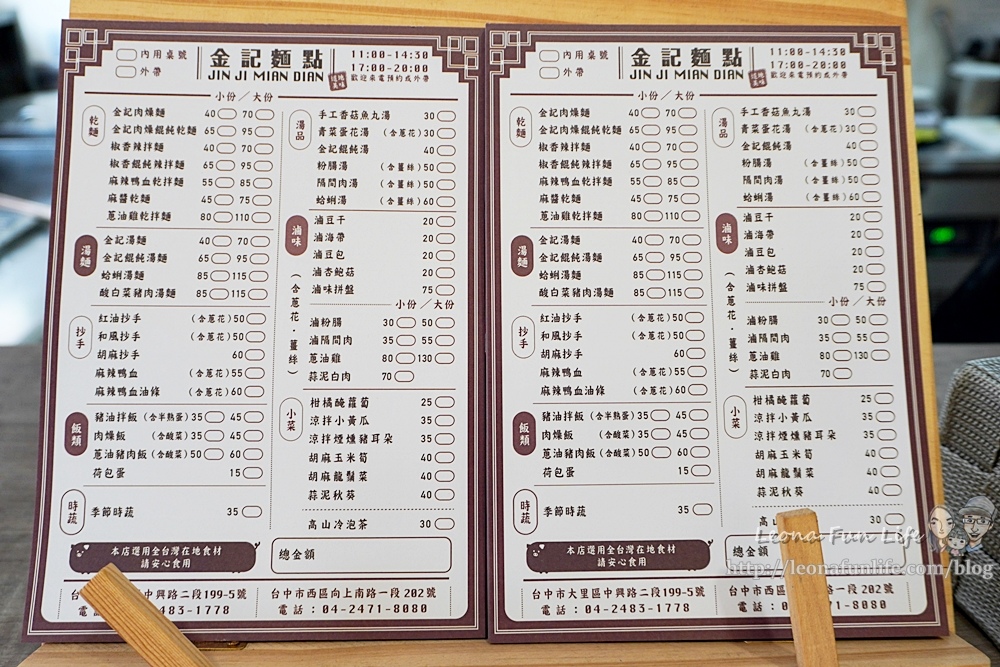 內用桌號
外帶
金記麵點
JIN JI MIAN DIAN
道地美味
11:00-14:30
17:00-20:00
歡迎來電預約或外帶
小份／大份
乾麵
金記肉燥麵 40 70
金記肉燥餛飩乾麵 65 95
椒香辣拌麵 40 70
椒香餛飩辣拌麵 65 95
麻辣鴨血乾拌麵 55 85
麻醬乾麵 45 75
蔥油雞乾拌麵 80 110
湯麵
金記湯麵 40 70
金記餛飩湯麵 65 95
蛤蜊湯麵 85 115
酸白菜豬肉湯麵 85 115
抄手
紅油抄手 (含蔥花) 50
和風抄手 (含蔥花) 50
胡麻抄手 60
麻辣鴨血 (含蔥花) 55
麻辣鴨血油條 (含蔥花) 60
飯類
豬油拌飯 (含半熟蛋) 35 45
肉燥飯 (含酸菜) 35 45
蔥油豬肉飯 (含酸菜) 50 60
荷包蛋 15
時蔬
季節時蔬 35
湯品
手工香菇魚丸湯 30
青菜蛋花湯 (含蔥花) 30
金記餛飩湯 40
粉腸湯 (含薑絲) 50
隔間肉湯 (含薑絲) 50
蛤蜊湯 (含薑絲) 60
滷味
(含蔥花・薑絲)
滷豆干 20
滷海帶 20
滷豆包 20
滷杏鮑菇 20
滷味拼盤 75
小份／大份
滷粉腸 30 50
滷隔間肉 35 55
蔥油雞 80 130
蒜泥白肉 70
小菜
柑橘醃蘿蔔 25
涼拌小黃瓜 35
涼拌煙燻豬耳朵 35
胡麻玉米筍 40
胡麻龍鬚菜 40
蒜泥秋葵 40
高山冷泡茶 30
本店選用全台灣在地食材
請安心食用
總金額
台中興路二段199-5號
04-2483-1778
台中市西區向上南路一段 202號
電話：04-2471-8080
內用桌號
外帶
金記麵點
JIN JI MIAN DIAN
道地美味
11:00-14:30
17:00-20:00
歡迎來電預約或外帶
小份／大份
乾麵
金記肉燥麵 40 70
金記肉燥餛飩乾麵 65 95
椒香辣拌麵 40 70
椒香餛飩辣拌麵 65 95
麻辣鴨血乾拌麵 55 85
麻醬乾麵 45 75
蔥油雞乾拌麵 80 110
湯麵
金記湯麵 40 70
金記餛飩湯麵 65 95
蛤蜊湯麵 85 115
酸白菜豬肉湯麵 85 115
抄手
紅油抄手 (含蔥花) 50
和風抄手 (含蔥花) 50
胡麻抄手 60
麻辣鴨血 (含蔥花) 55
麻辣鴨血油條 (含蔥花) 60
飯類
豬油拌飯 (含半熟蛋) 35 45
肉燥飯 (含酸菜) 35 45
蔥油豬肉飯 (含酸菜) 50 60
荷包蛋 15
時蔬
季節時蔬 35
湯品
手工香菇魚丸湯 30
青菜蛋花湯 (含蔥花) 30
金記餛飩湯 40
粉腸湯 (含薑絲) 50
隔間肉湯 (含薑絲) 50
蛤蜊湯 (含薑絲) 60
滷味
(含蔥花・薑絲)
滷豆干 20
滷海帶 20
滷豆包 20
滷杏鮑菇 20
滷味拼盤 75
小份／大份
滷粉腸 30 50
滷隔間肉 35 55
蔥油雞 80 130
蒜泥白肉 70
小菜
柑橘醃蘿蔔 25
涼拌小黃瓜 35
涼拌煙燻豬耳朵 35
胡麻玉米筍 40
胡麻龍鬚菜 40
蒜泥秋葵 40
高山 30
本店選用全台灣在地食材
請安心食用
總金額
台中市大里區中興路二段199-5號
電話：04-2483-1778
台中市西區 路一段 202號
電話 71-8080
Leona Fun Life
http://leonafunlife.com/blog